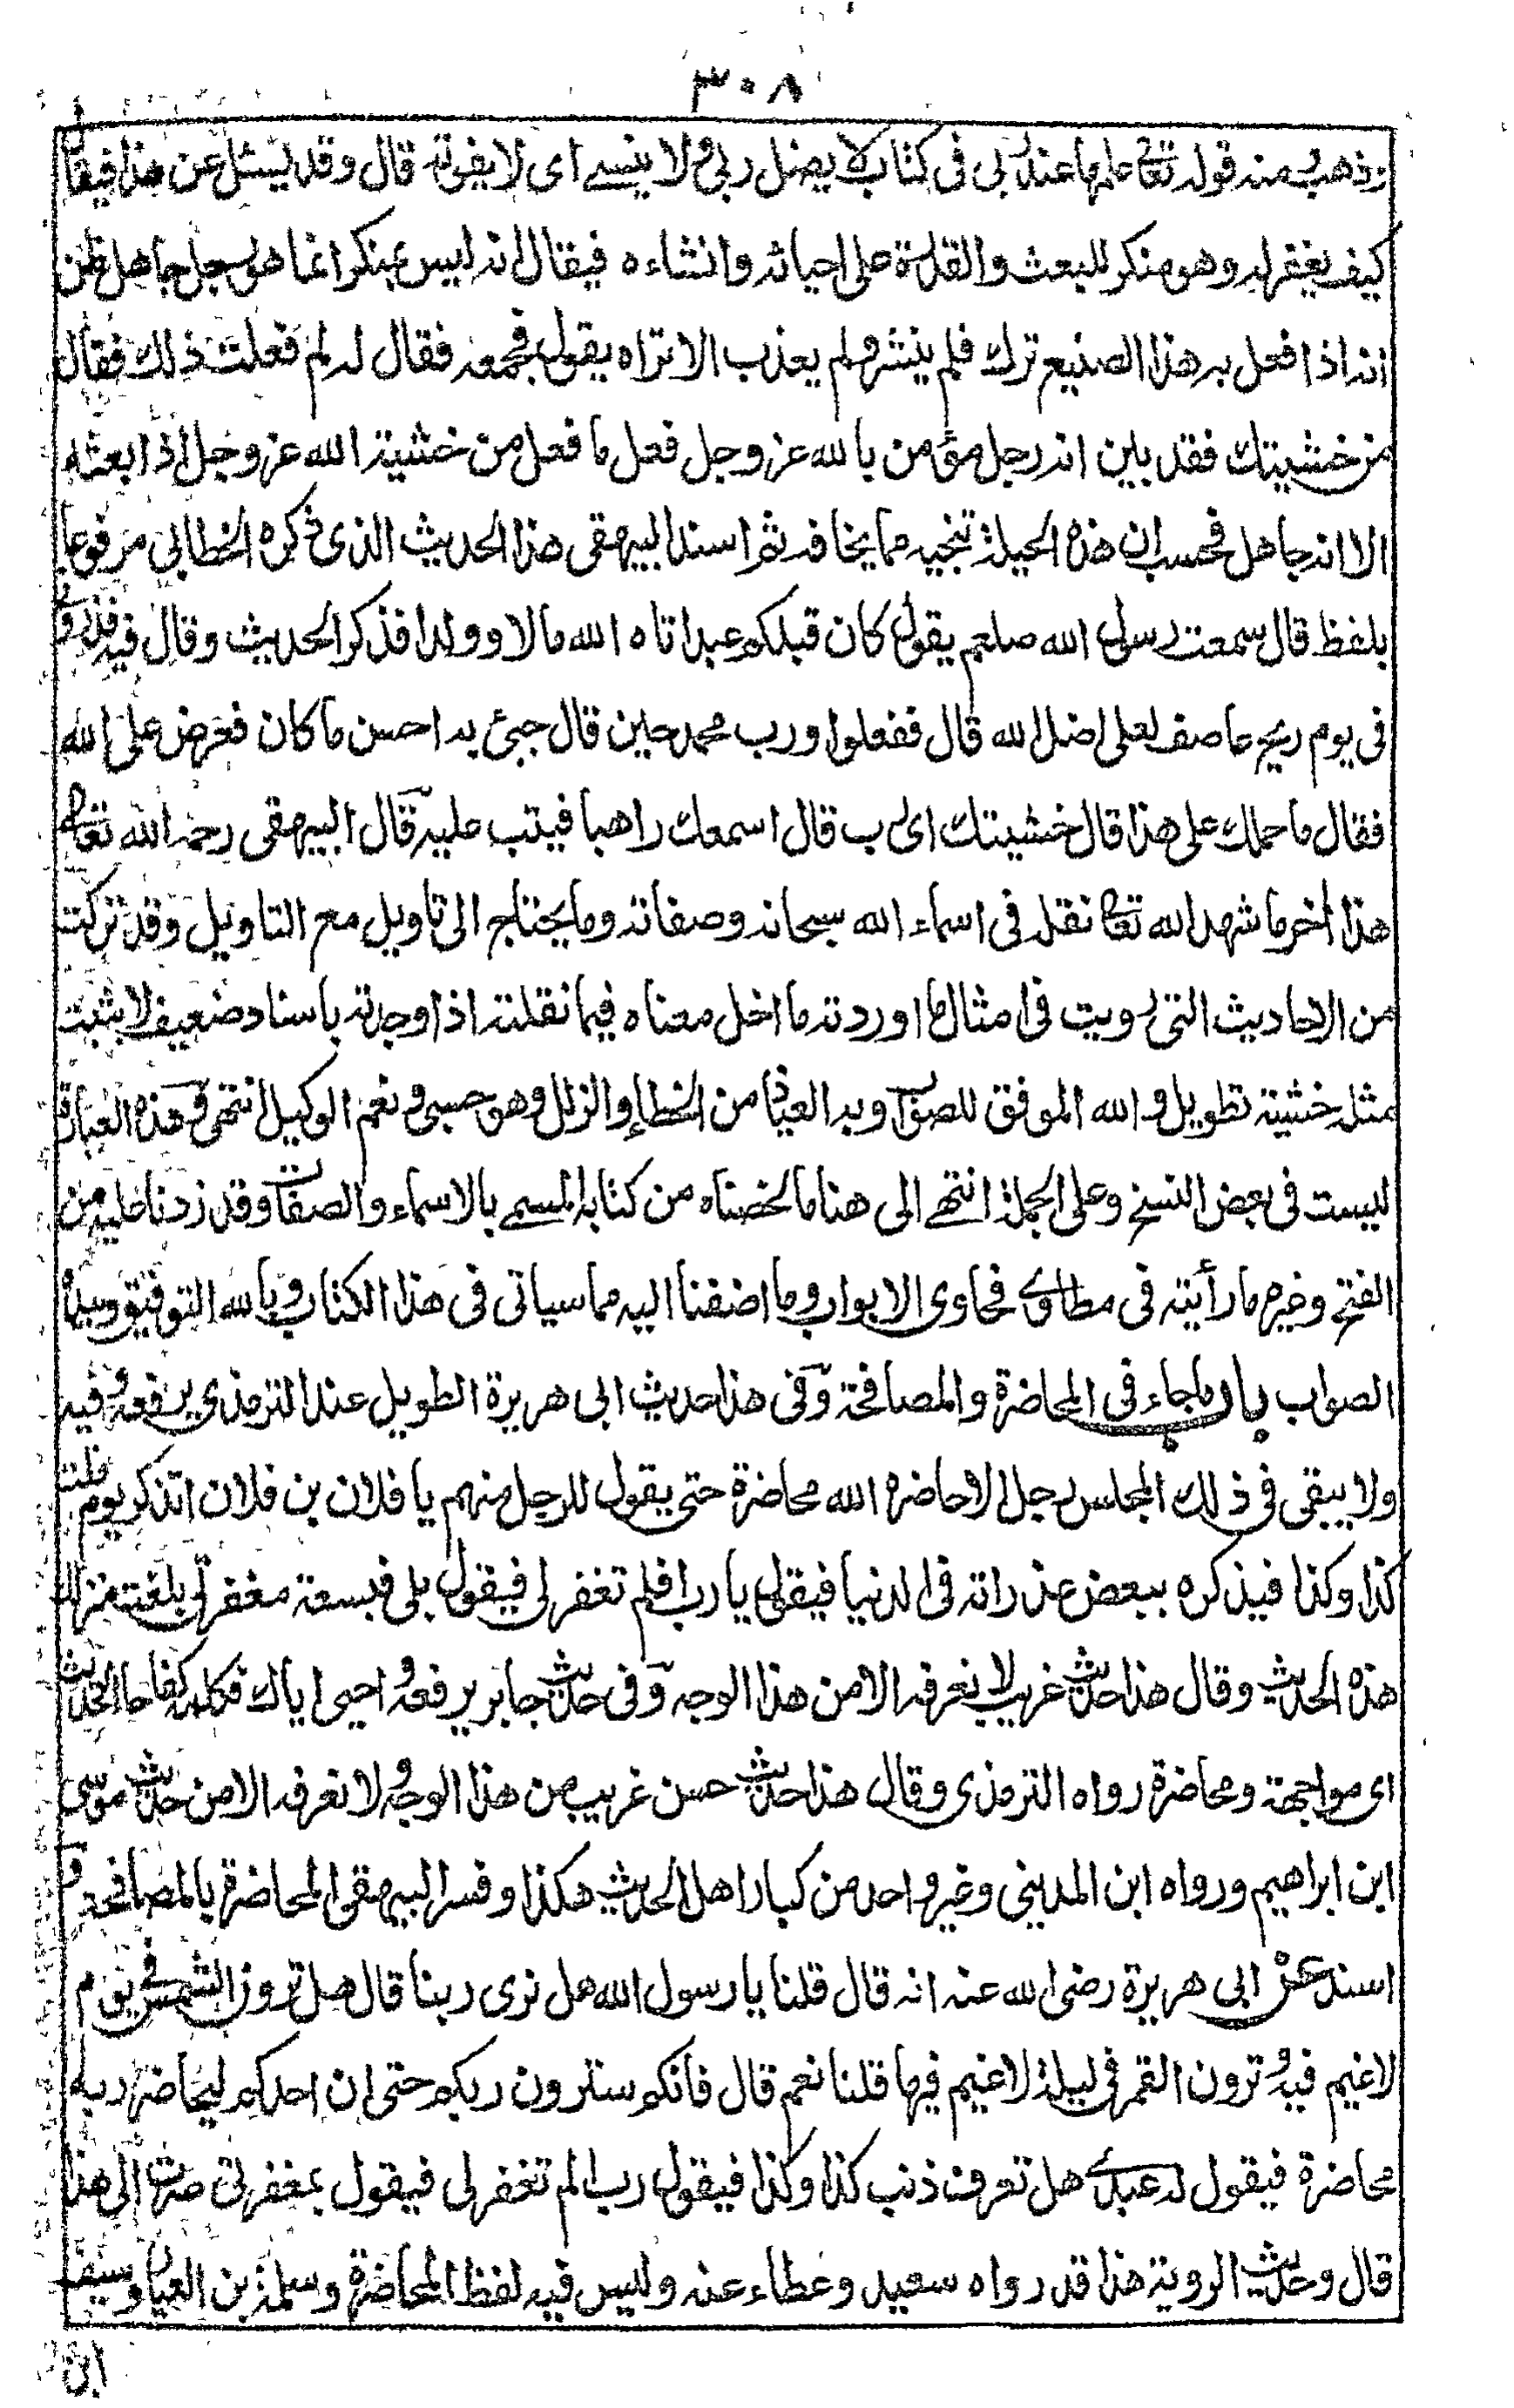 ٣٠٨
وذهب ومنه قوله تعالى علمها عند ربي في كتاب لا يضل ربي ولا ينسى اى لا يفوته قال وقد يسئل عن هذا فيقال
كيف يغفر له وهو منكر للبعث والقدرة على احيائه وانشاءه فيقال انه ليس بمنكر انما هو رجل جاهل ظن
انه اذا فعل به هذا الصنيع ترك فلم ينشر ولم يعذب الا تراه يقول فجمعه فقال له لم فعلت ذلك فقال
من خشيتك فقد بين انه رجل مؤمن بالله عز وجل فعل ما فعل من خشية الله عز وجل اذا بعثه
الا انه جاهل فحسب ان هذه الحيلة تنجيه مما يخافه ثم اسند البيهقى هذا الحديث الذى ذكره الخطابى مرفوعا
بلفظ قال سمعت رسول الله صلعم يقول كان قبلكم عبد اتاه الله مالا وولدا فذكر الحديث وقال فيه فذروني
فى يوم ريح عاصف لعلى اضل الله قال ففعلوا ورب محمد حين قال جئ به احسن ما كان فعرض على الله
فقال ما حملك على هذا قال خشيتك اى رب قال اسمعك راهبا فيتب عليه قال البيهقى رحمه الله تعالى
هذا اخر ما شهد الله تعالى نقله فى اسماء الله سبحانه وصفاته وما يحتاج الى تاويل مع التاويل وقد تركت
من الاحاديث التى رويت فى امثال ما اوردته ما اخل معناه فيما نقلته اذا وجدته باسناد ضعيف لا يثبت
مثله خشية تطويل والله الموفق للصواب وبه العياذ من الخطاء والزلل وهو حسبى ونعم الوكيل انتهى وهذه العبارة
ليست فى بعض النسخ وعلى الجملة انتهى الى هنا ما لخصناه من كتابه المسمى بالاسماء والصفات وقد زدنا عليه من
الفتح وغيره ما رأيته فى مطاوى فحاوى الابواب وما اضفنا اليه مما سياتى فى هذا الكتاب وبالله التوفيق وبيده
الصواب باب ما جاء فى المحاضرة والمصافحة وفى هذا حديث ابى هريرة الطويل عند الترمذى يرفعه وفيه
ولا يبقى فى ذلك المجلس رجل الا حاضره الله محاضرة حتى يقول للرجل منهم يا فلان بن فلان اتذكر يوم قلت
كذا وكذا فيذكره ببعض عذراته فى الدنيا فيقول يا رب افلم تغفر لى فيقول بلى فبسعة مغفرتى بلغت منزلتك
هذه الحديث وقال هذا حديث غريب لا نعرفه الا من هذا الوجه وفى حديث جابر يرفعه احيى اباك فكلمه كفاحا الحديث
اى مواجهة ومحاضرة رواه الترمذى وقال هذا حديث حسن غريب من هذا الوجه ولا نعرفه الا من حديث موسى
ابن ابراهيم ورواه ابن المدينى وغير واحد من كبار اهل الحديث هكذا وفسر البيهقى المحاضرة بالمصافحة و
اسند عن ابى هريرة رضى الله عنه انه قال قلنا يا رسول الله هل نرى ربنا قال هل ترون الشمس فى يوم
لا غيم فيه وترون القمر فى ليلة لا غيم فيها قلنا نعم قال فانكم سترون ربكم حتى ان احدكم ليحاضر ربه
محاضرة فيقول له عبدى هل تعرف ذنب كذا وكذا فيقول رب الم تغفر لى فيقول بمغفرتى صرت الى هذا
قال وحديث الروية هذا قد رواه سعيد وعطاء عنه وليس فيه لفظ المحاضرة وسلمة بن العيار وسيف
ابن